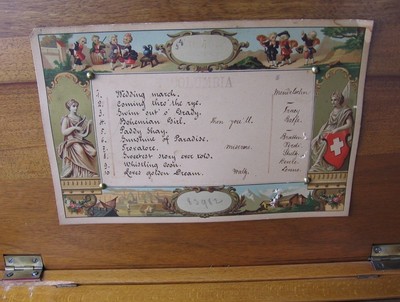 COLOMBIA
1. Wedding march, Mendelsohn
2. Coming thro' the rye. —
3. Swim out o' Grady.
4. Bohemian Girl, Then you'll Balfe.
5. Paddy Shay. —
6. Sunshine of Paradise.
7. Trovatore. miserere Verdi
8. Sweetest story ever told.
9. Whistling coon.
10. Loves golden Dream. Waltz.